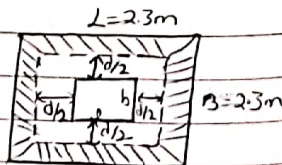 L=2.3m
d/2
d/2 b d/2 B=2.3m
d/2